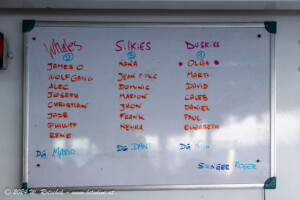 Whales
JAMES O
WOLFGANG
ALEC
JOSEPH
CHRISTIAN
JADE
PHILIPP
RENE
DG MARIO
SILKIES
NANA
JEAN-LUC
DOMINIC
MARION
JHON
FRANK
NENHA
DG DANI
DUSKIES
OLGA
MARTI
DAVID
CALEB
DANIEL
PAUL
ELIZABETH
DG
SWINGER ROGER
© 2024 M. Reinbek -